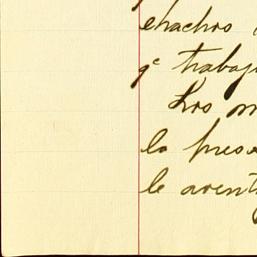 chachos
qe trabaj
Los m
la pres
le avent